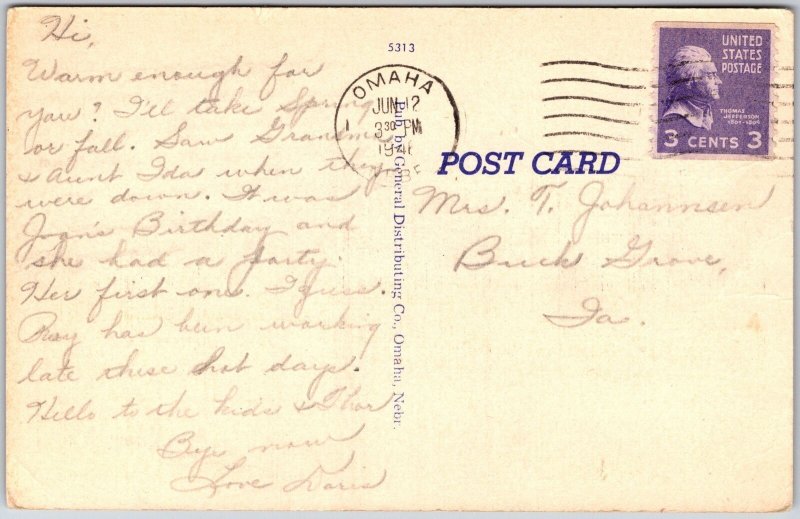 Hi,
Warm enough for
you? I'll take Spring
or fall. Saw Grandma
& Aunt Ida when they
were down. It was
Joan's Birthday and
she had a party.
Her first one. I guess.
Ray has been working
late these hot days.
Hello to the kids & Thor
Bye now
Love Doris
5313
Pub. by General Distributing Co., Omaha, Nebr.
OMAHA
JUN 12
3 30 PM
POST CARD
UNITED
STATES
POSTAGE
THOMAS
JEFFERSON
1801-1809
3 CENTS 3
Mrs. T. Johannsen
Buck Grove,
Ia.